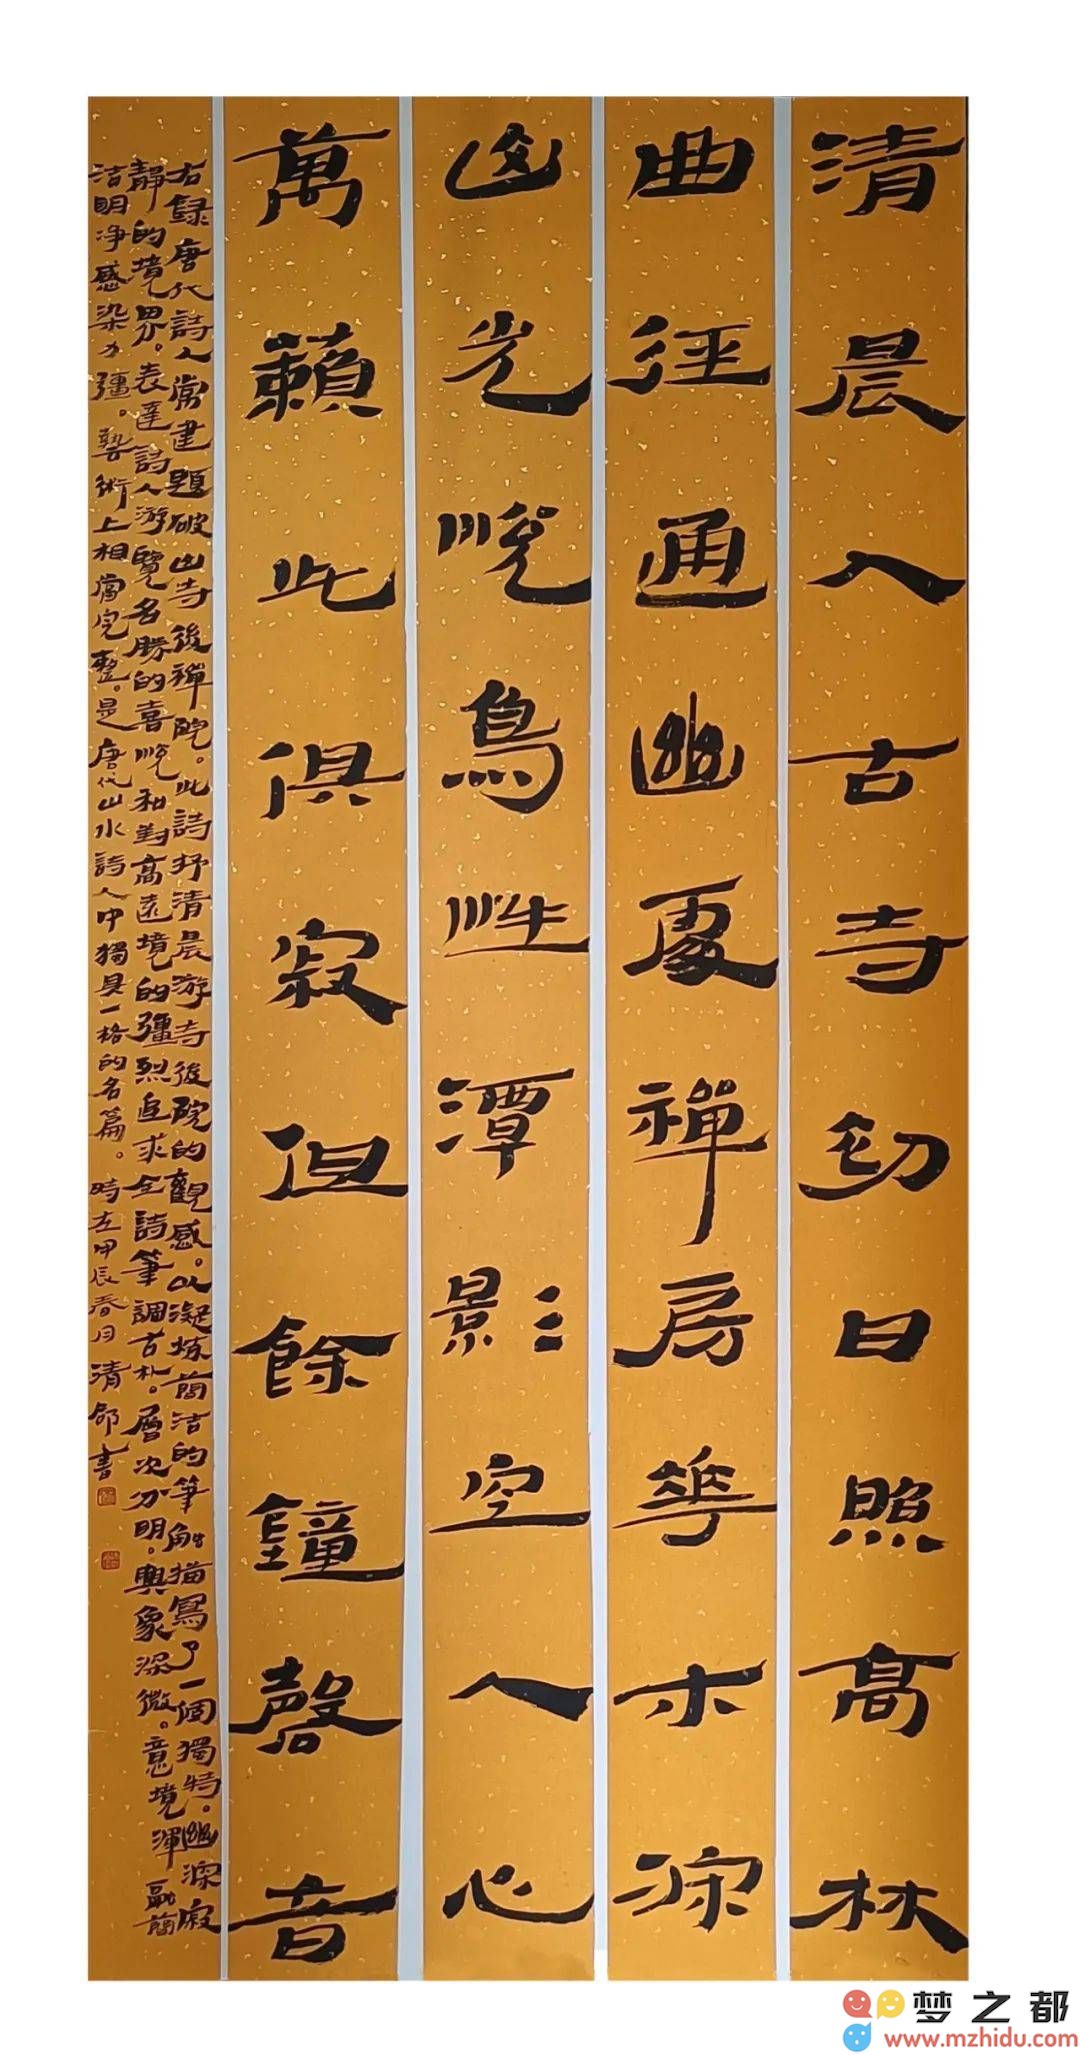 清晨入古寺初日照高林
曲徑通幽處禪房花木深
山光悅鳥性潭影空人心
萬籟此俱寂但餘鐘磬音
右録唐代詩人常建題破山寺後禪院。此詩抒清晨游寺後院的觀感。以凝炼蕳洁的筆触描寫了一個獨特。幽深寂
静的境界。表達詩人游覽名勝的喜悅和對高遠境的彊烈追求全詩筆調古朴。層次分明。興象深微。意境渾融蕳
洁明净感染力彊。藝術上相當完整。是唐代山水詩人中獨具一格的名篇。時在甲辰春月清郃書
梦之都
www.mzhidu.com